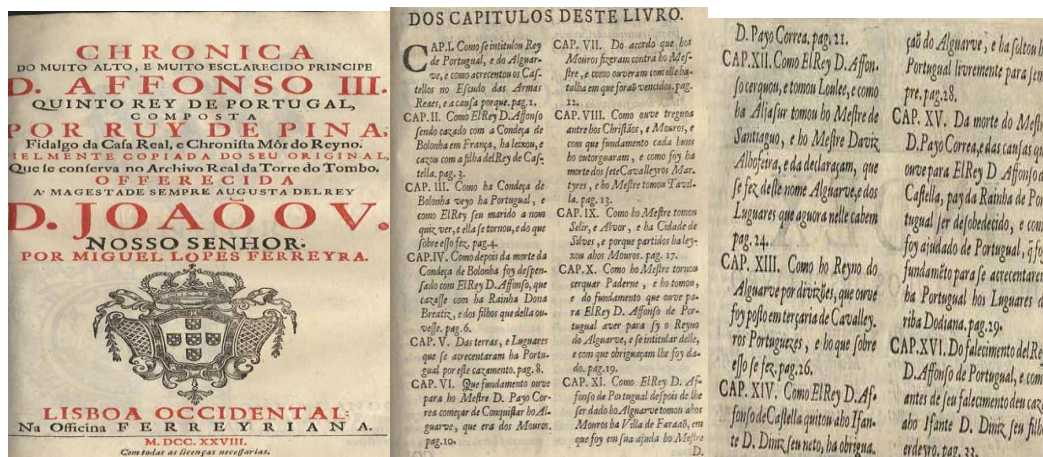 CHRONICA
DO MUITO ALTO, E MUITO ESCLARECIDO PRINCIPE
D. AFFONSO III.
QUINTO REY DE PORTUGAL,
COMPOSTA
POR RUY DE PINA,
Fidalgo da Casa Real, e Chronista Môr do Reyno.
IELMENTE COPIADA DO SEU ORIGINAL,
Que se conserva no Archivo Real da Torre do Tombo.
OFFERECIDA
A' MAGESTADE SEMPRE AUGUSTA DELREY
D. JOAÕ O V.
NOSSO SENHOR.
POR MIGUEL LOPES FERREYRA.
LISBOA OCCIDENTAL:
Na Officina FERREYRIANA.
M. DCC. XXVIII.
Com todas as licenças necessarias.
DOS CAPITULOS DESTE LIVRO.
CAP. I. Como se intitulou Rey
de Portugal, e do Algar-
ve, e como acrecentou os Cas-
tellos no Escudo das Armas
Reaes, e a causa porque. pag. 1.
CAP. II. Como ElRey D. Affonso
sendo cazado com a Condeça de
Bolonha em França, ha leixou, e
cazou com a filha delRey de Cas-
tella. pag. 3.
CAP. III. Como ha Condeça de
Bolonha veyo ha Portugal, e
como ElRey seu marido a nom
quiz ver, e ella se tornou, e do que
sobre esso fez. pag. 4.
CAP. IV. Como depois da morte da
Condeça de Bolonha foy despen-
sado com ElRey D. Affonso, que
cazasse com ha Rainha Dona
Breatiz, e dos filhos que della ou-
vesse. pag. 6.
CAP. V. Das terras, e Luguares
que se acrecentaram ha Portu-
gual por este cazamento. pag. 8.
CAP. VI. Que fundamento ouve
para ho Mestre D. Payo Cor-
rea começar de Conquistar ho Al-
guarve, que era dos Mouros.
pag. 10.
CAP. VII. Do acordo que hos
Mouros fizeram contra ho Mes-
tre, e como ouveram com elle ba-
talha em que foraõ vencidos. pag.
12.
CAP. VIII. Como ouve treguoa
antre hos Christãos, e Mouros, e
com que fundamento cada huns
ho outorguaram, e como foy ha
morte dos sete Cavalleyros Mar-
tyres, e ho Mestre tomou Tavil-
la. pag. 13.
CAP. IX. Como ho Mestre tomou
Selir, e Alvor, e ha Cidade de
Silves, e porque partidos ha ley-
xou ahos Mouros. pag. 17.
CAP. X. Como ho Mestre tornou
cerquar Paderne, e ho tomou,
e do fundamento que ouve pa-
ra ElRey D. Affonso de Por-
tugual aver para sy o Reyno
do Alguarve, e se intitular delle,
e com que obriguaçam lhe foy da-
do. pag. 19.
CAP. XI. Como ElRey D. Af-
fonso de Portugual despois de lhe
ser dado ho Alguarve tomou ahos
Mouros ha Villa de Faraaõ, em
que foy em sua ajuda ho Mestre
D.
D. Payo Correa. pag. 21.
CAP. XII. Como ElRey D. Affon-
so cerquou, e tomou Loulee, e como
ha Aljasur tomou ho Mestre de
Santiaguo, e ho Mestre Daviz
Albofeira, e da declaraçam, que
se fez delle nome Alguarve, e dos
Luguares que aguora nelle cabem
pag. 24.
CAP. XIII. Como ho Reyno do
Alguarve por divizões, que ouve
foy posto em terçaria de Cavalley-
ros Portuguezes, e ho que sobre
esso se fez. pag. 26.
CAP. XIV. Como ElRey D. Af-
fonso de Castella quitou aho Ifan-
te D. Diniz seu neto, ha obrigua-
çaõ do Alguarve, e ha soltou h
Portugal livremente para sem
pre. pag. 28.
CAP. XV. Da morte do Mest
D. Payo Correa, e das causas qu
ouve para ElRey D. Affonso d
Castella, pay da Rainha de Por
tugual ser desobedecido, e com
foy ajudado de Portugual, q̃ fo
fundamẽto para se acrecentare
ha Portugual hos Luguares d
riba Dodiana. pag. 29.
CAP. XVI. Do falecimento del Re
D. Affonso de Portugual, e com
antes de seu falecimento deu caz
aho Ifante D. Diniz seu filh
erdeyro. pag. 32.